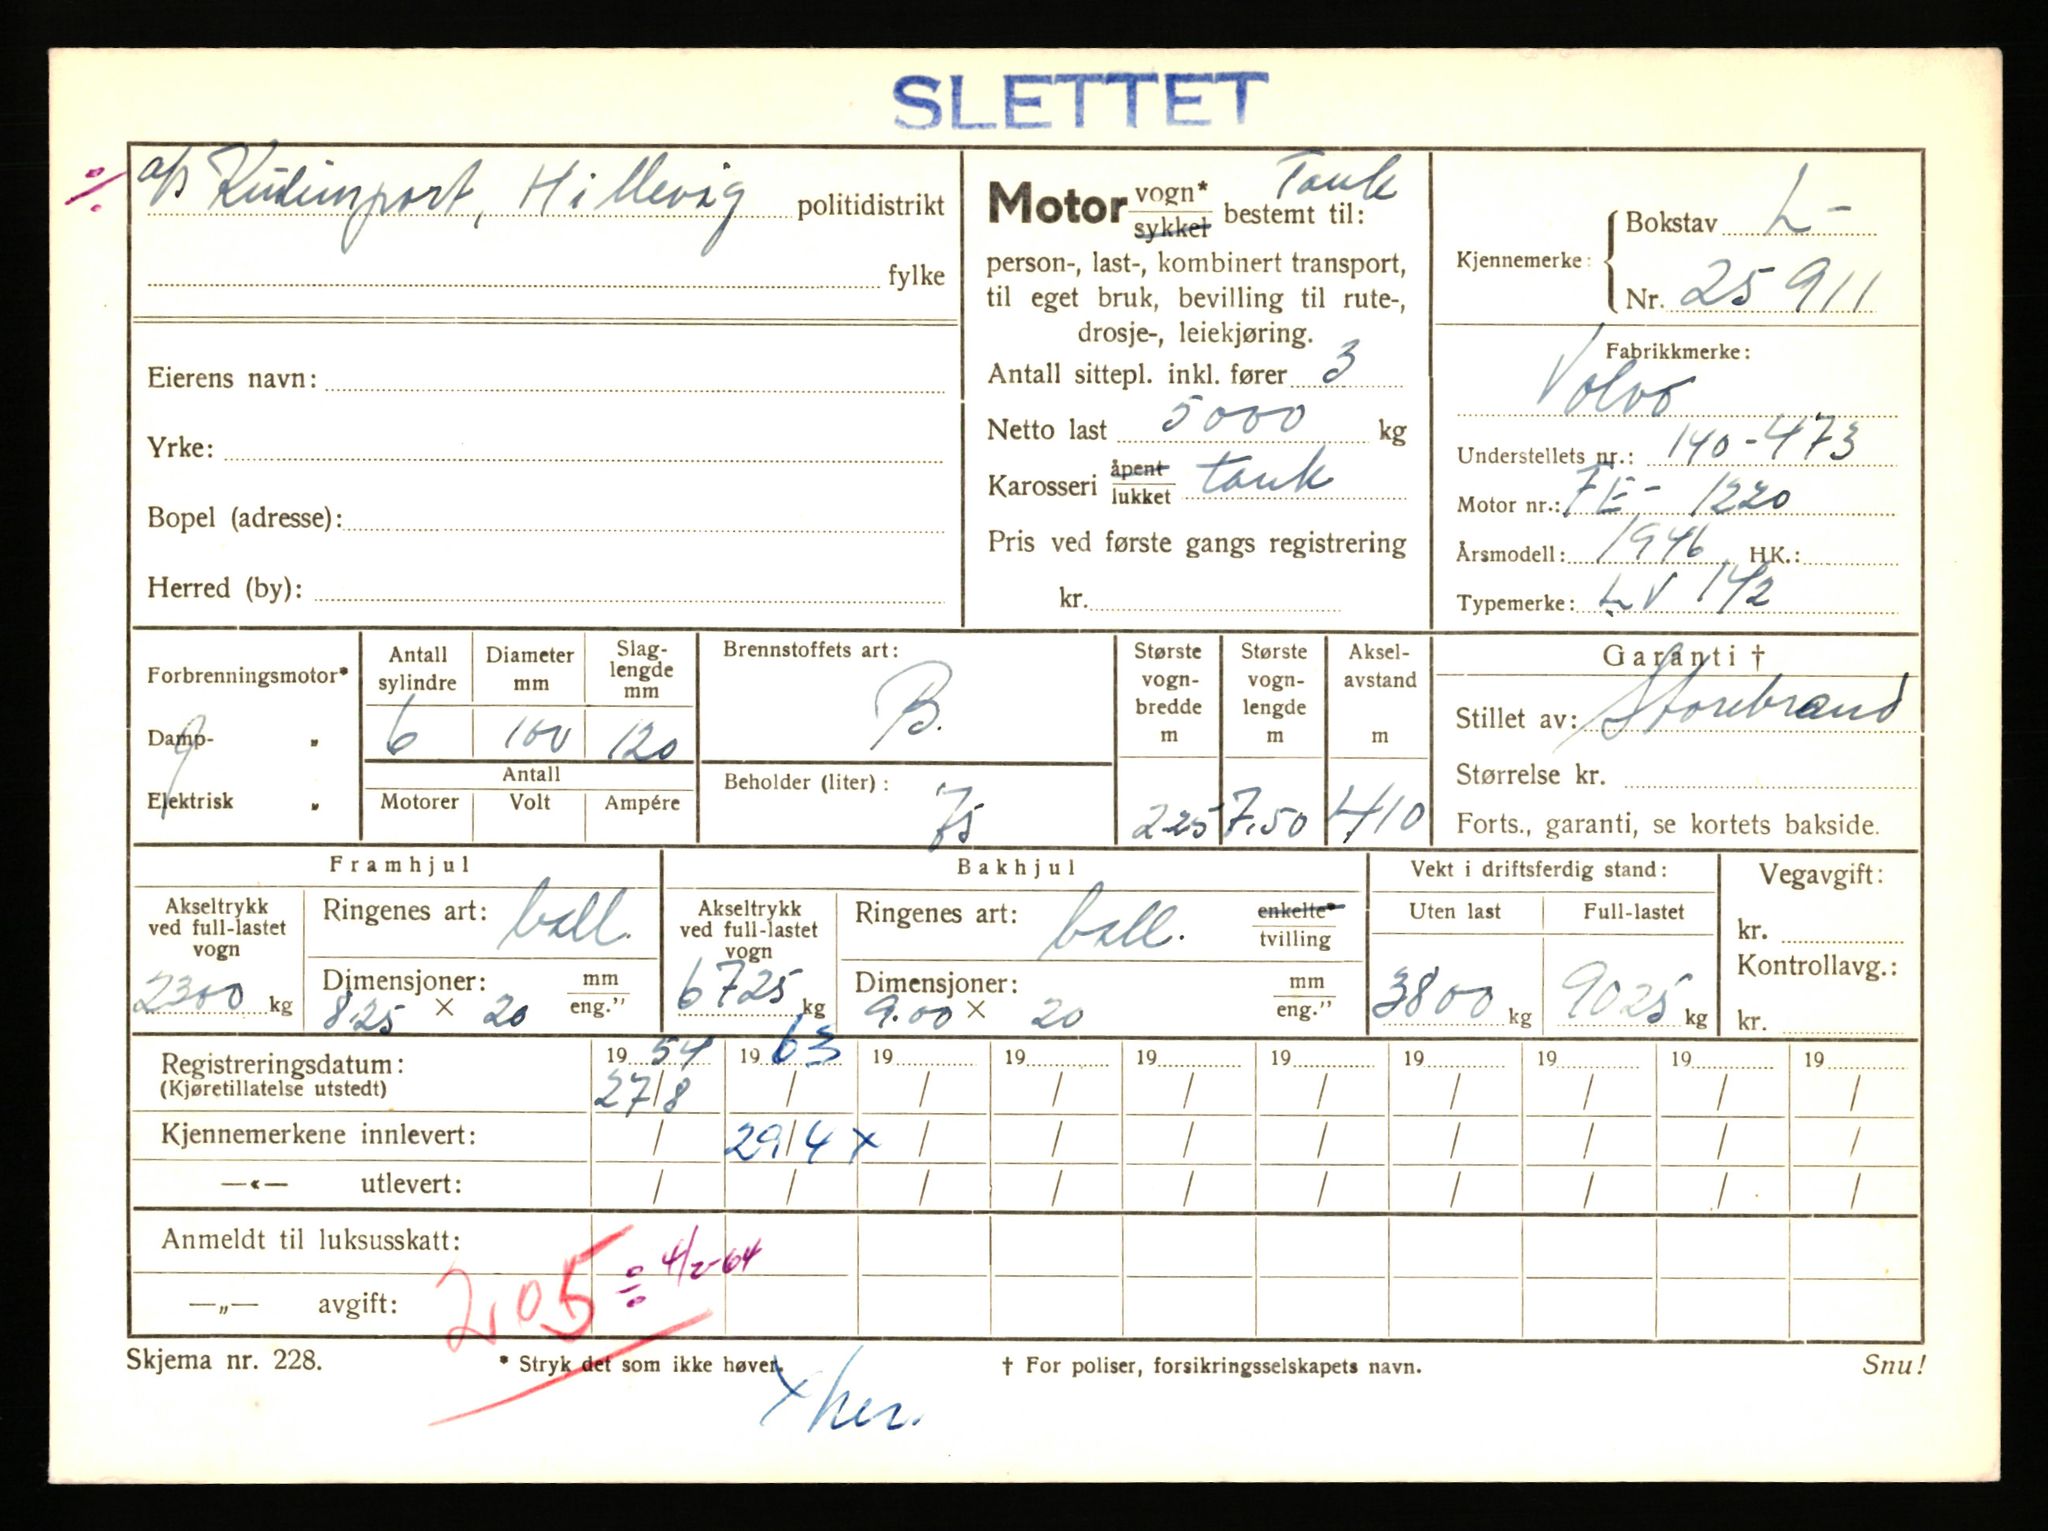 SLETTET
A/S Kulimport, Hillevåg politidistrikt
fylke
Eierens navn:
Yrke:
Bopel (adresse):
Herred (by):
Motor vogn* sykkel bestemt til: Tank
person-, last-, kombinert transport,
til eget bruk, bevilling til rute-,
drosje-, leiekjøring.
Antall sittepl. inkl. fører 3
Netto last 5000 kg
Karosseri åpent lukket tank
Pris ved første gangs registrering
kr.
Kjennemerke: Bokstav L-
Nr. 25911
Fabrikkmerke:
Volvo
Understellets nr.: 140-473
Motor nr.: FE-1220
Årsmodell: 1946 HK.:
Typemerke: LV 142
Forbrenningsmotor*
Damp- „
Elektrisk „
Antall sylindre 6
Diameter mm 100
Slag-lengde mm 120
Antall
Motorer Volt Ampére
Brennstoffets art:
B.
Beholder (liter):
75
Største vogn-bredde m 225
Største vogn-lengde m 7.50
Aksel-avstand m 410
Garanti †
Stillet av: Storebrand
Størrelse kr.
Forts., garanti, se kortets bakside.
Framhjul
Akseltrykk ved full-lastet vogn 2300 kg
Ringenes art: ball.
Dimensjoner: 8.25 x 20 mm eng."
Bakhjul
Akseltrykk ved full-lastet vogn 6725 kg
Ringenes art: ball. enkelte* tvilling
Dimensjoner: 9.00 x 20 mm eng."
Vekt i driftsferdig stand:
Uten last 3800 kg
Full-lastet 9025 kg
Vegavgift:
kr.
Kontrollavg.:
kr.
Registreringsdatum: 19 54 19 63 19 19 19 19 19 19 19 19
(Kjøretillatelse utstedt) 27/8 / / / / / / / / /
Kjennemerkene innlevert: / 29/4 x / / / / / / / /
—«— utlevert: / / / / / / / / / /
Anmeldt til luksusskatt:
—„— avgift: 205 ÷ 4/2-64
Skjema nr. 228.
* Stryk det som ikke høver.
† For poliser, forsikringsselskapets navn.
Snu!
x her.